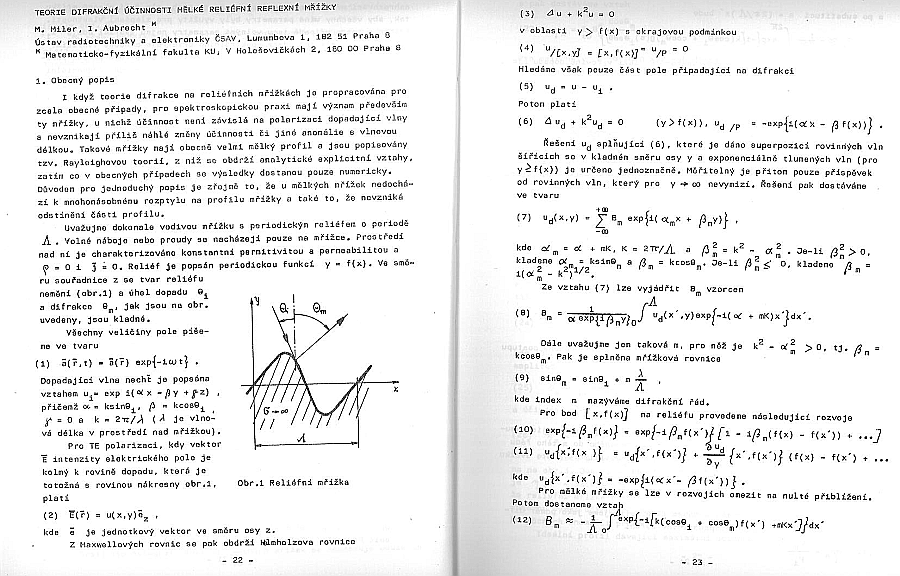 TEORIE DIFRAKČNÍ ÚČINNOSTI MĚLKÉ RELIÉFNÍ REFLEXNÍ MŘÍŽKY
M. Miler, I. Aubrecht ˣ
Ústav radiotechniky a elektroniky ČSAV, Lumumbova 1, 182 51 Praha 8
ˣ Matematicko-fyzikální fakulta KU, V Holešovičkách 2, 180 00 Praha 8
1. Obecný popis
I když teorie difrakce na reliéfních mřížkách je propracována pro
zcela obecné případy, pro spektroskopickou praxi mají význam především
ty mřížky, u nichž účinnost není závislá na polarizaci dopadající vlny
a nevznikají příliš náhlé změny účinnosti či jiné anomálie s vlnovou
délkou. Takové mřížky mají obecně velmi mělký profil a jsou popisovány
tzv. Rayleighovou teorií, z níž se obdrží analytické explicitní vztahy,
zatím co v obecných případech se výsledky dostanou pouze numericky.
Důvodem pro jednoduchý popis je zřejmě to, že u mělkých mřížek nedochá-
zí k mnohonásobnému rozptylu na profilu mřížky a také to, že nevzniká
odstínění části profilu.
Uvažujme dokonale vodivou mřížku s periodickým reliéfem o periodě
Λ . Volné náboje nebo proudy se nacházejí pouze na mřížce. Prostředí
nad ní je charakterizováno konstantní permitivitou a permeabilitou a
ρ = 0 i j̄ = 0. Reliéf je popsán periodickou funkcí y = f(x). Ve smě-
ru souřadnice z se tvar reliéfu
nemění (obr.1) a úhel dopadu θi
a difrakce θm, jak jsou na obr.
uvedeny, jsou kladné.
Všechny veličiny pole píše-
me ve tvaru
(1) ā(r̄,t) = ā(r̄) exp{-iωt} .
Dopadající vlna nechť je popsána
vztahem ui= exp i(αx - βy + γz) ,
přičemž α = ksinθi, β = kcosθi ,
γ = 0 a k = 2π/λ ( λ je vlno-
vá délka v prostředí nad mřížkou).
Pro TE polarizaci, kdy vektor
Ē intenzity elektrického pole je
kolmý k rovině dopadu, která je
totožná s rovinou nákresny obr.1,
platí
(2) Ē(r̄) = u(x,y)ēz ,
kde ē je jednotkový vektor ve směru osy z.
Z Maxwellových rovnic se pak obdrží Helmholzova rovnice
y
θi
θm
x
σ→∞
Λ
Obr.1 Reliéfní mřížka
- 22 -
(3) Δu + k²u = 0
v oblasti y > f(x) s okrajovou podmínkou
(4) u/[x,y] = [x,f(x)] = u/P = 0
Hledáme však pouze část pole připadající na difrakci
(5) ud = u - ui .
Potom platí
(6) Δud + k²ud = 0 (y>f(x)), ud /P = -exp{i(αx - βf(x))} .
Řešení ud splňující (6), které je dáno superpozicí rovinných vln
šířících se v kladném směru osy y a exponenciálně tlumených vln (pro
y≥f(x)) je určeno jednoznačně. Měřitelný je přitom pouze příspěvek
od rovinných vln, který pro y → ∞ nevymizí. Řešení pak dostáváme
ve tvaru
(7) ud(x,y) = Σ+∞-∞ Bm exp{i(αmx + βmy)} ,
kde αm = α + mK, K = 2π/Λ a βm² = k² - αm² . Je-li βm² > 0,
klademe αm = ksinθm a βm = kcosθm. Je-li βm² ≤ 0, klademe βm =
i(αm² - k²)1/2.
Ze vztahu (7) lze vyjádřit Bm vzorcem
(8) Bm = 1/(α exp{iβmy}) 0∫Λ ud(x´,y)exp{-i(α + mK)x´}dx´.
Dále uvažujme jen taková m, pro něž je k² - αm² > 0, tj. βm =
kcosθm. Pak je splněna mřížková rovnice
(9) sinθm = sinθi + m λ/Λ ,
kde index m nazýváme difrakční řád.
Pro bod [x,f(x)] na reliéfu provedeme následující rozvoje
(10) exp{-iβmf(x)} = exp{-iβmf(x´)}[1 - iβm(f(x) - f(x´)) + ...]
(11) ud{x´,f(x )} = ud{x´,f(x´)} + ∂ud/∂y {x´,f(x´)} (f(x) - f(x´) + ...
kde ud{x´,f(x´)} = -exp{i(αx´- βf(x´))} .
Pro mělké mřížky se lze v rozvojích omezit na nulté přiblížení.
Potom dostaneme vztah
(12) Bm ≈ - 1/Λ 0∫Λ exp{-i[k(cosθi + cosθm)f(x´) +mKx´]}dx´
- 23 -